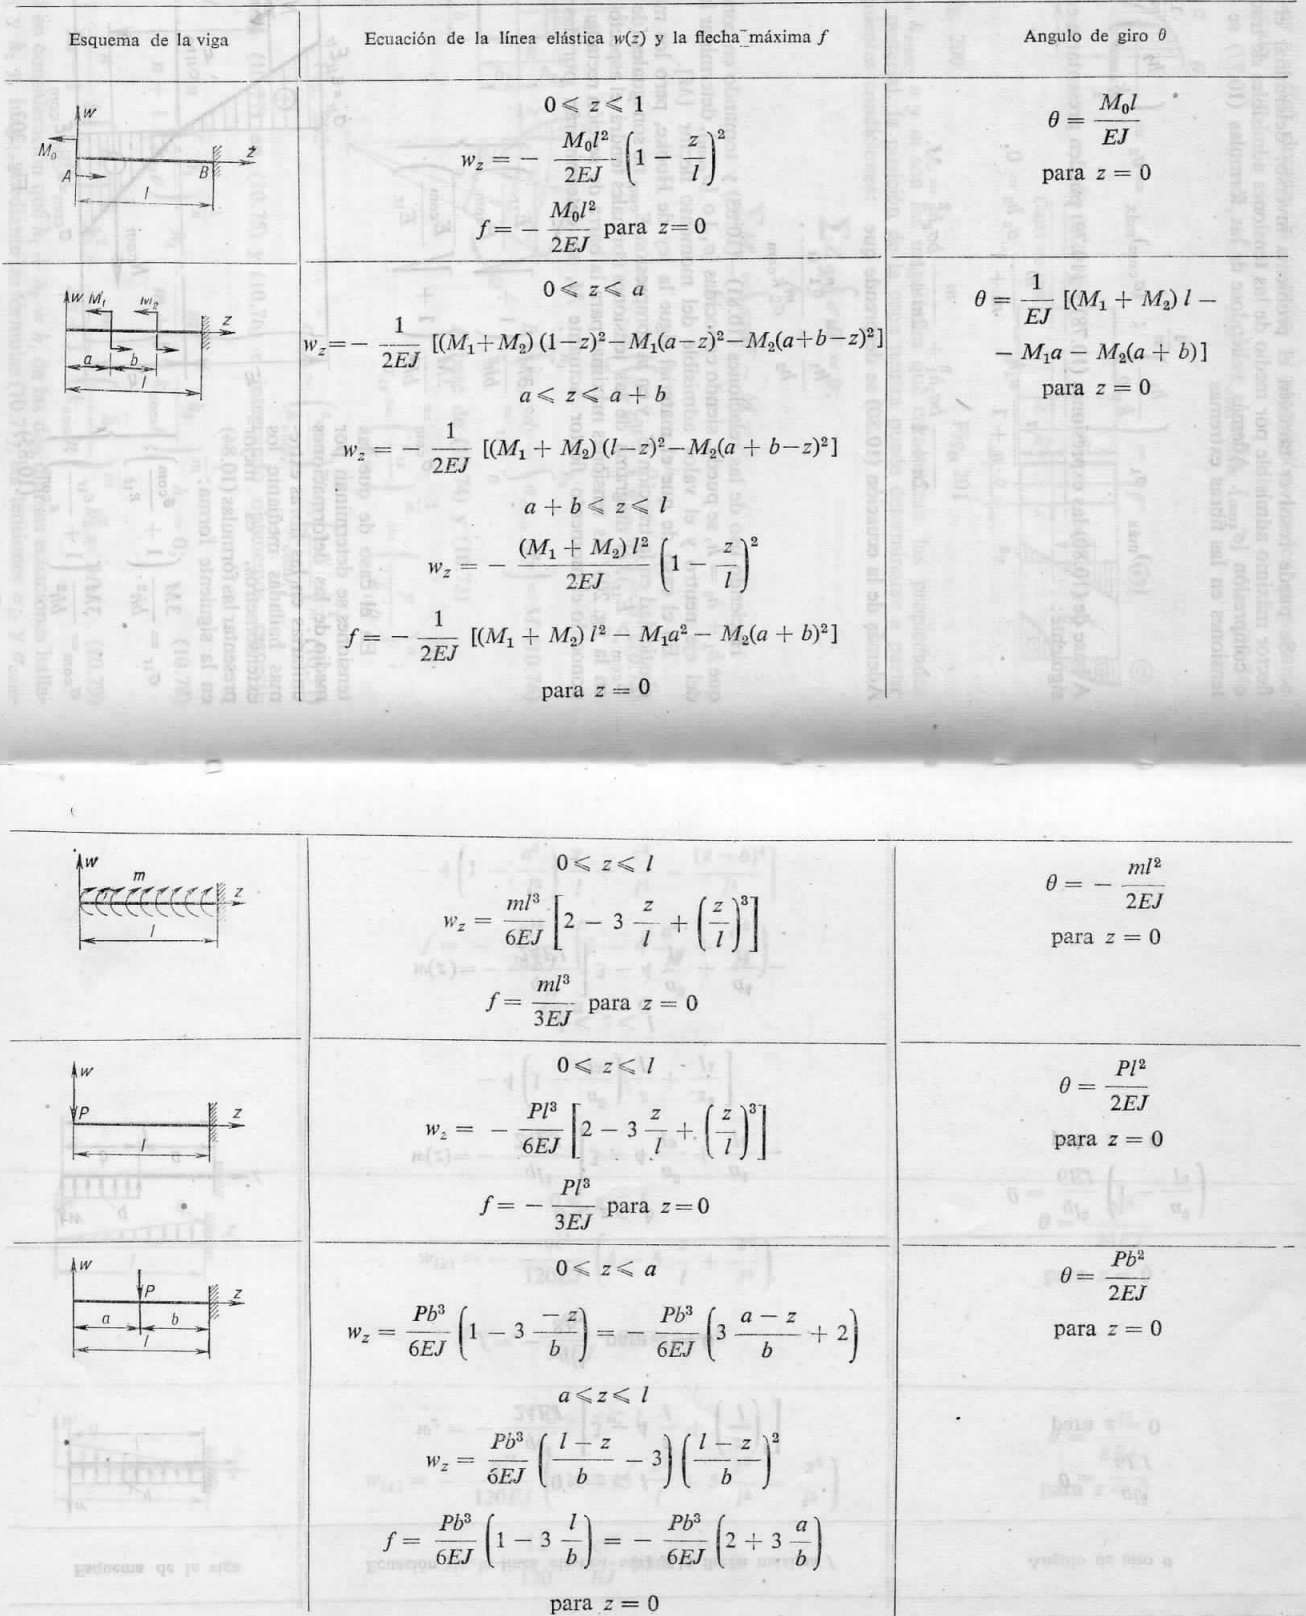 Esquema de la viga
Ecuación de la línea elástica w(z) y la flecha máxima f
Angulo de giro θ
w
M₀
A
B
z
l
0 ⩽ z ⩽ 1
w_z = − M₀l²/2EJ (1 − z/l)²
f = − M₀l²/2EJ para z=0
θ = M₀l/EJ
para z = 0
w M₁ M₂
z
a b
l
0 ⩽ z ⩽ a
w_z = − 1/2EJ [(M₁+M₂) (1−z)²−M₁(a−z)²−M₂(a+b−z)²]
a ⩽ z ⩽ a + b
w_z = − 1/2EJ [(M₁ + M₂) (l−z)²−M₂(a + b−z)²]
a + b ⩽ z ⩽ l
w_z = − (M₁ + M₂) l²/2EJ (1 − z/l)²
f = − 1/2EJ [(M₁ + M₂) l² − M₁a² − M₂(a + b)²]
para z = 0
θ = 1/EJ [(M₁ + M₂) l −
− M₁a − M₂(a + b)]
para z = 0
w
m
z
l
0 ⩽ z ⩽ l
w_z = ml³/6EJ [2 − 3 z/l + (z/l)³]
f = ml³/3EJ para z = 0
θ = − ml²/2EJ
para z = 0
w
P
z
l
0 ⩽ z ⩽ l
w_z = − Pl³/6EJ [2 − 3 z/l + (z/l)³]
f = − Pl³/3EJ para z=0
θ = Pl²/2EJ
para z = 0
w
P
z
a b
l
0 ⩽ z ⩽ a
w_z = Pb³/6EJ (1 − 3 −z/b) = − Pb³/6EJ (3 a − z/b + 2)
a⩽z⩽ l
w_z = Pb³/6EJ (l − z/b − 3) (l − z/b)²
f = Pb³/6EJ (1 − 3 l/b) = − Pb³/6EJ (2 + 3 a/b)
para z = 0
θ = Pb²/2EJ
para z = 0